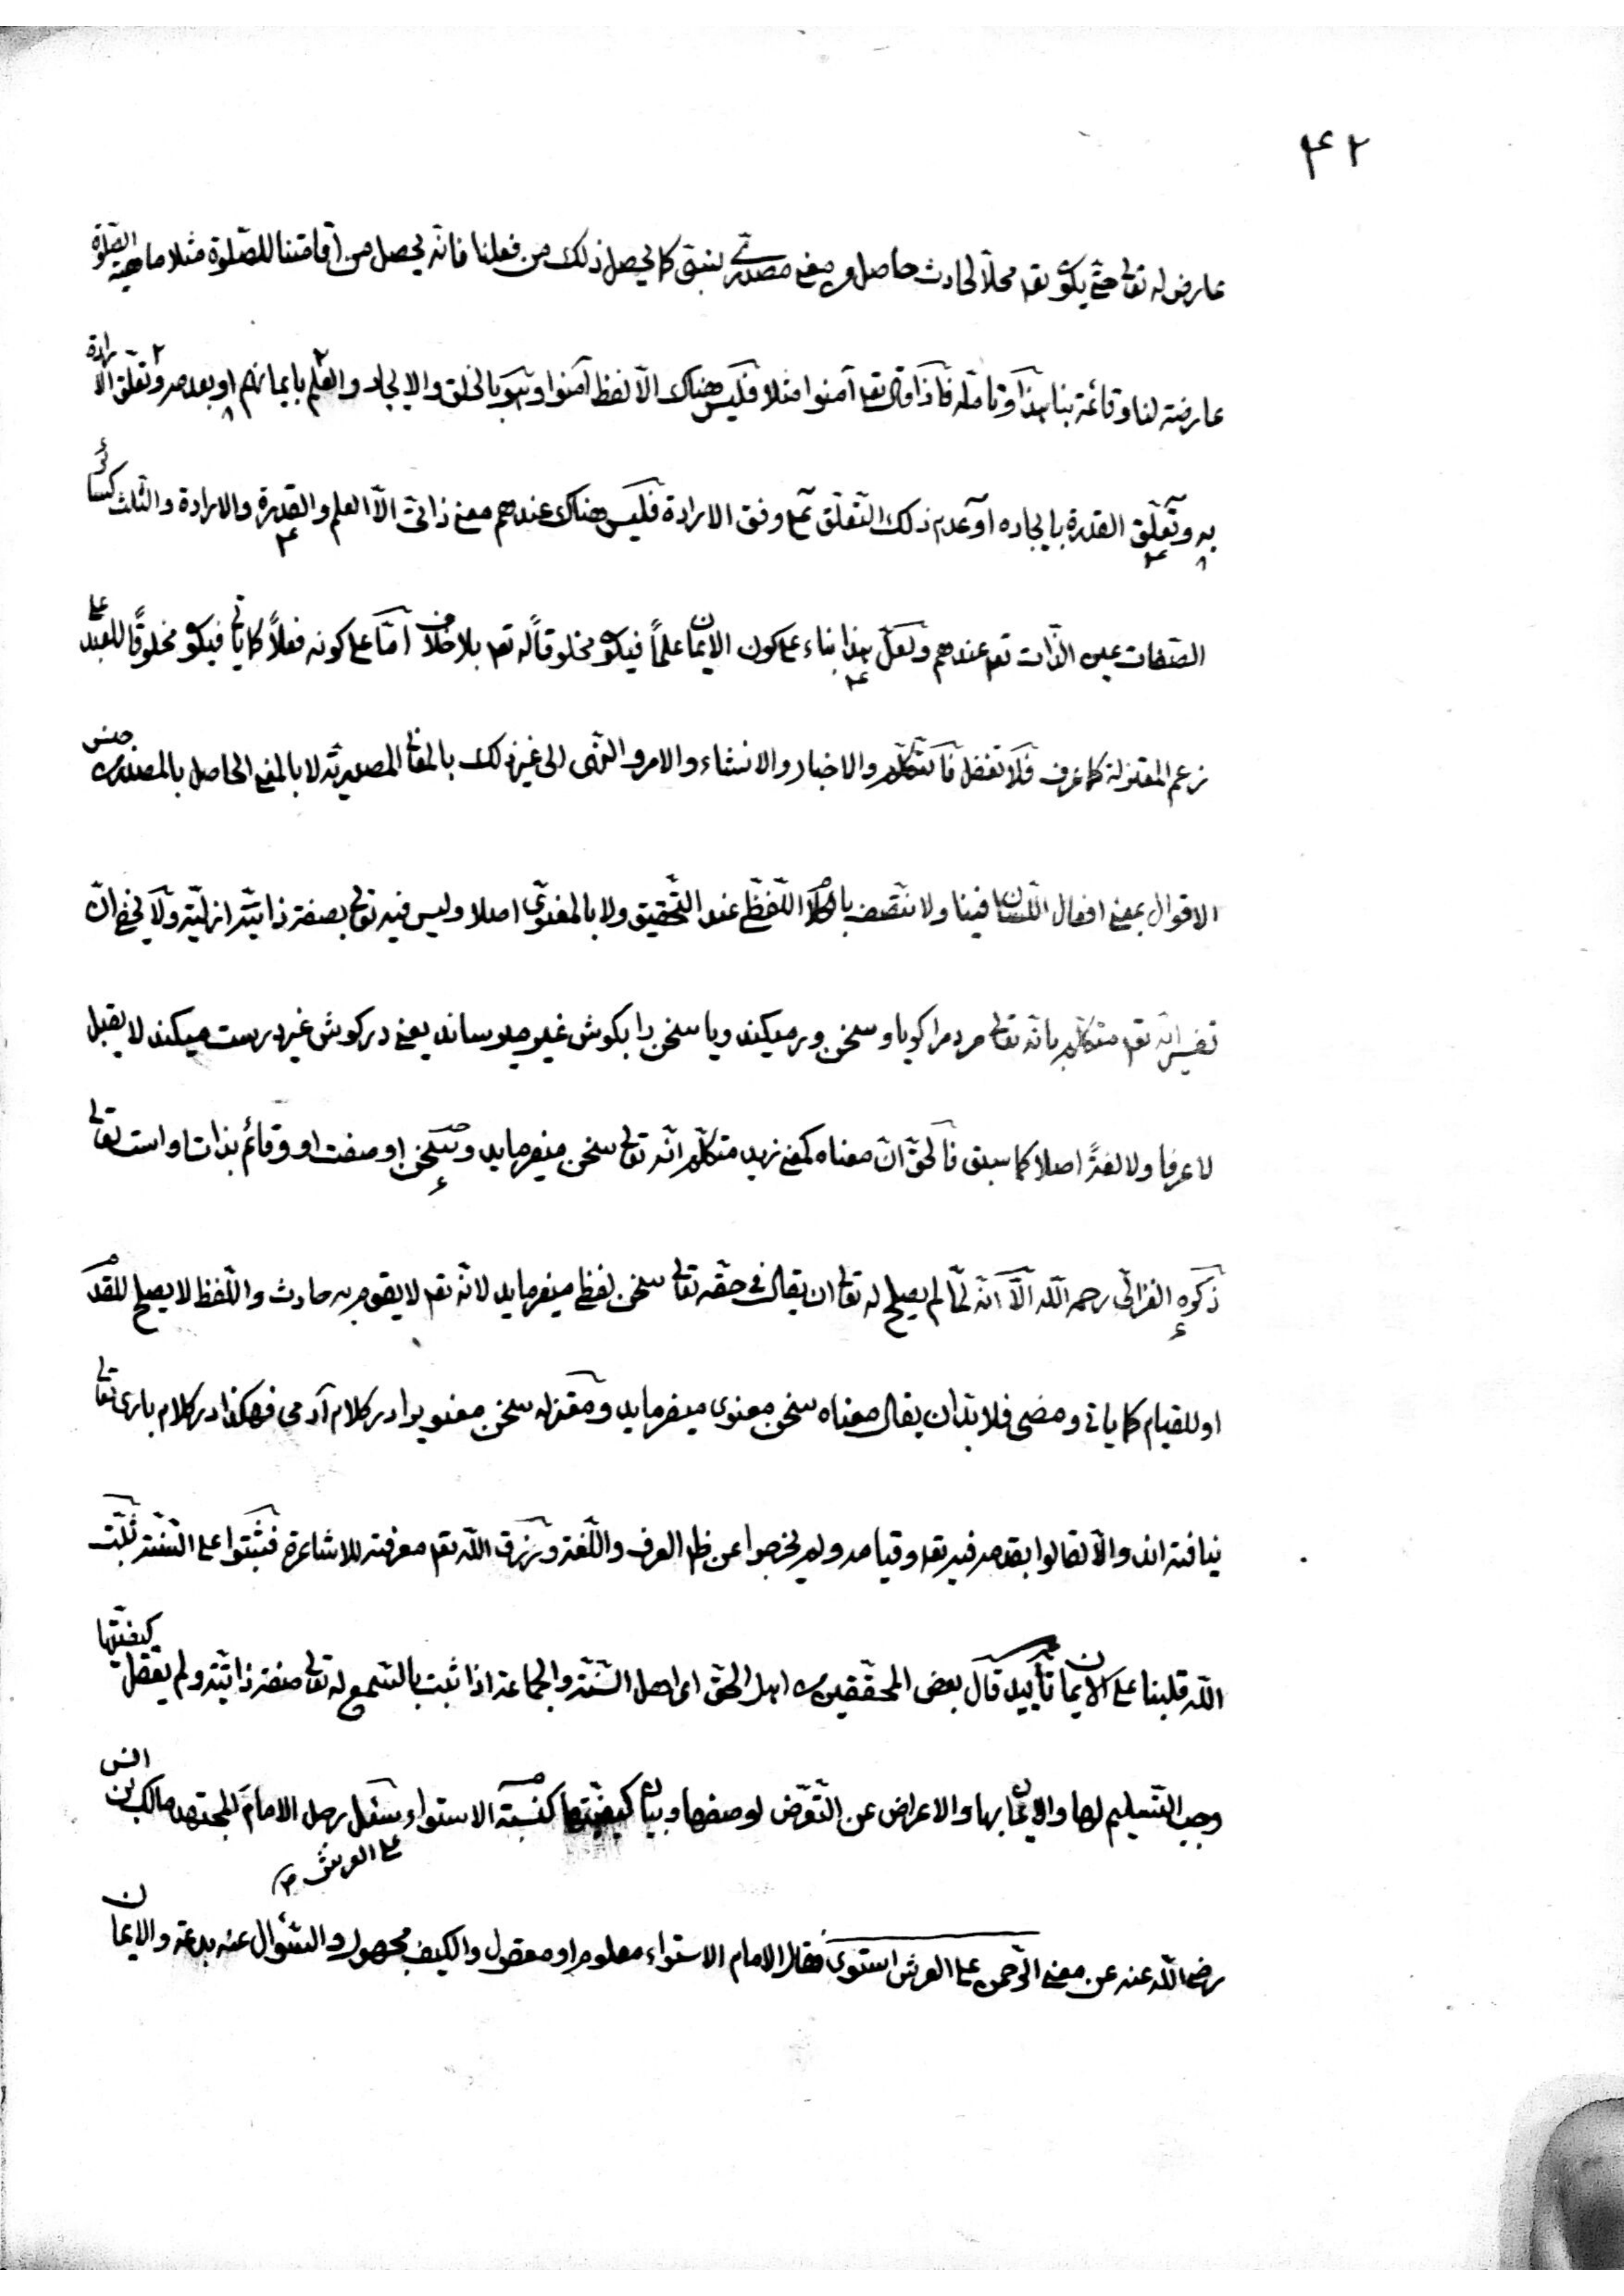 ٤٢
عارض له تعالى حتى يكون تعم محلا لحادث حاصل ومعنى مصدري نسبتى كما يحصل ذلك من فعلنا فانه يحصل من اقامتنا للصّلوة مثلا ماهية الصّلوة
عارضة لنا وقائمة بنا هذا وتامله فاذا قال تعم آمنوا مثلا فليس هناك الّا لفظ آمنوا وهو بالخلق والايجاد والعلم بايمانهم او بعدمه وتعلّق الارادة
به وتعلّق القدرة بايجاده او عدم ذلك التعلّق على وفق الارادة فليس هناك عندهم معنى ذاتى الّا العلم والقدرة والارادة والثلث كسائر
الصّفات عين الذّات تعم عندهم ولعلّ هذا بناء على كون الايمان علماً فيكون مخلوقاً له تعم بلا خلاف امّا على كونه فعلاً كما ياتى فيكون مخلوقًا للعبد على
زعم المعتزلة كما عرف فلا تغفل فالتكلّم والاخبار والانشاء والامر والنهى الى غير ذلك بالمعانى المصدرية لا بالمعنى الحاصل بالمصدر من جنس
الاقوال بمعنى افعال اللّسان فينا ولا نتّصف بالكلام اللّفظىّ عند التّحقيق ولا بالمعنوىّ اصلا وليس فيه تعالى بصفة ذاتيّة ازليّة ولا يخفى انّ
تفسير انّه تعم متكلّم بانّه تعالى مردم را كويا وسخن ور ميكند ويا سخن را بكوش غير ميرساند يعنى در كوش غير درست ميكند لا يقبل
لا عرفا ولا لغةً اصلا كما سبق فالحقّ انّ معناه كمعنى زيد متكلّم انّه تعالى سخن ميفرمايد وسخن او صفت او وقائم بذات او است تعالى
ذكره الغزالىّ رحمه اللّه الّا انّه لمّا لم يصلح له تعالى ان يقال فى حقّه تعالى سخن لفظى ميفرمايد لانّه تعم لا يقوم به حادث واللّفظ لا يصلح للقدم
او للقيام كما ياتى ومضى فلا بدّ ان يقال معناه سخن معنوى ميفرمايد ومعتزله سخن معنوى را در كلام آدمى فهكذا در كلام بارى تعالى
نيافته اند والّا لقالوا بقدمه فيه تعم وقيامه ولم يخرجوا عن ظاهر العرف واللّغة ورزق اللّه تعم معرفته للاشاعرة فثبتوا على السّنّة ثبّت
اللّه قلبنا على الايمان تأييد قال بعض المحقّقين من اهل الحقّ اى اهل السّنّة والجماعة اذا ثبت بالسّمع له تعالى صفة ذاتيّة ولم يعقل كيفيّتها
وجب التّسليم لها والايمان بها والاعراض عن التّعرّض لوصفها وبيان كيفيّتها كنسبة الاستواء على العرش سئل رجل الامام المجتهد مالك بن انس
رضى اللّه عنه عن معنى الرّحمن على العرش استوى فقال الامام الاستواء معلوم او معقول والكيف مجهول والسّؤال عنه بدعة والايمان